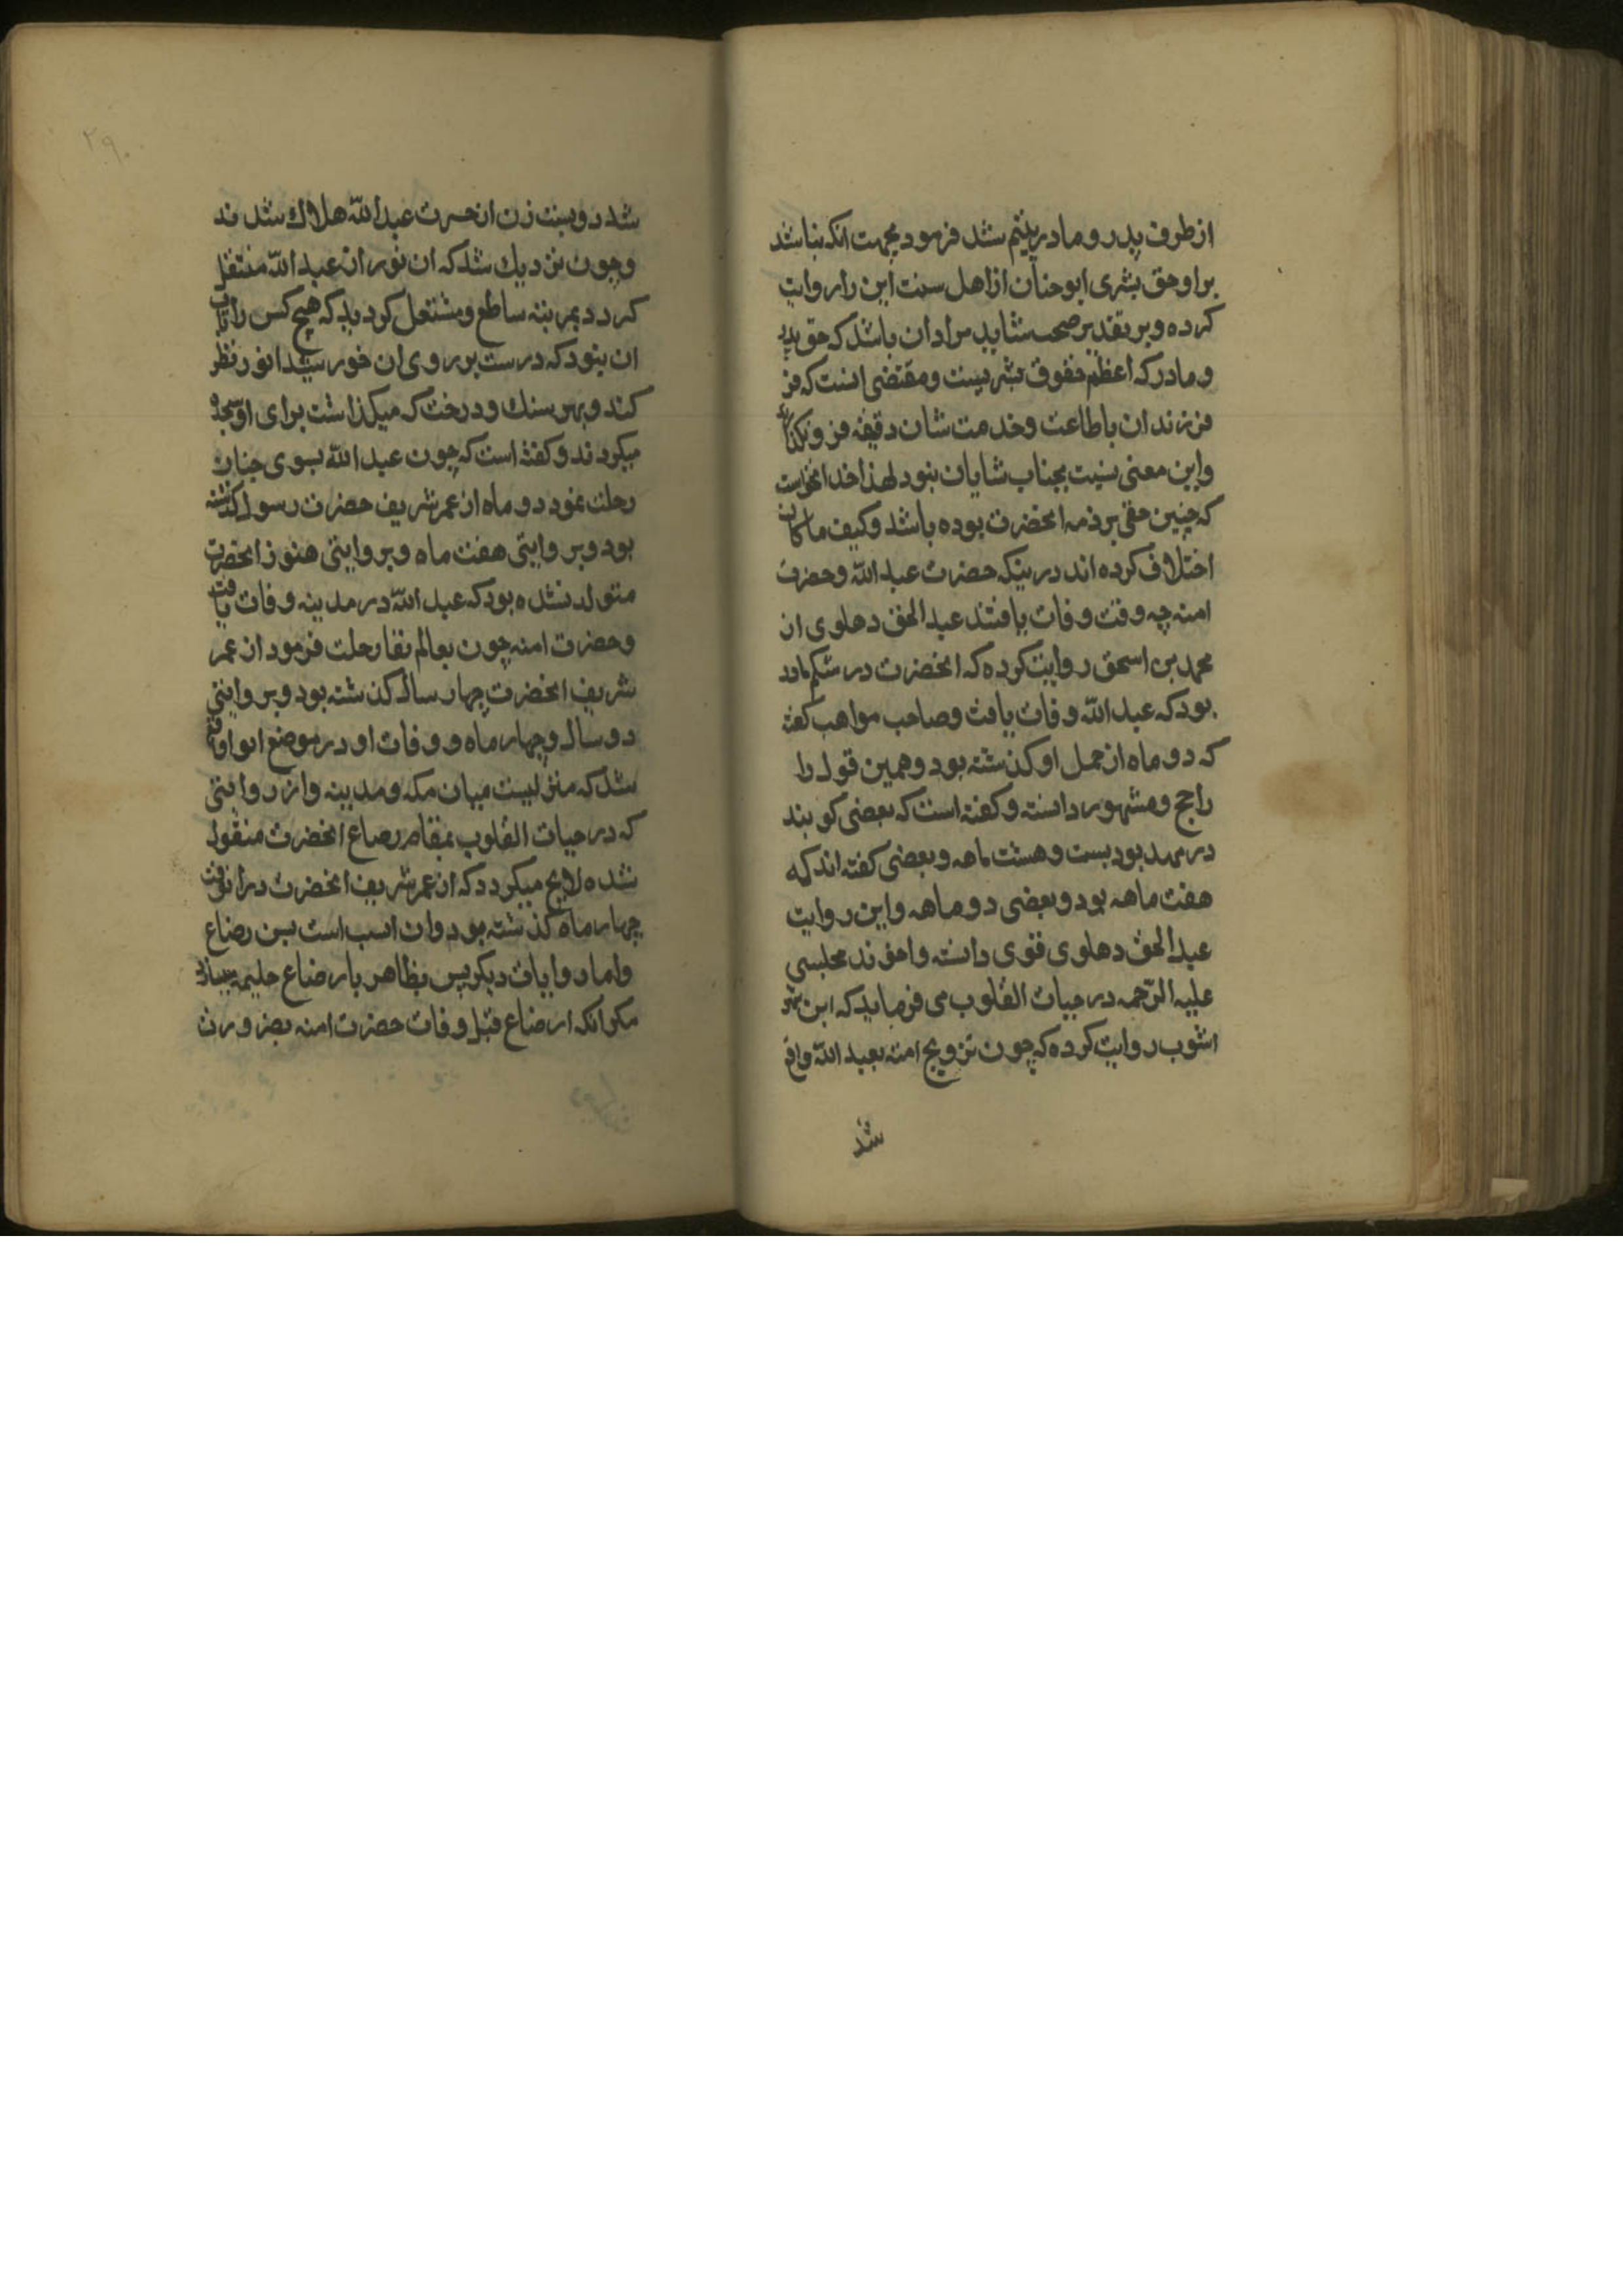 از طرف پدر و مادر یتیم شد فرمود بجهت انکه نباشد
بر او حق بشری ابوحنان از اهل سنت این را روایت
کرده و بر تقدیر صحت شاید مراد ان باشد که حق پدر
و مادر که اعظم حقوق بشریست و مقتضی انست که
فرزندان با طاعت و خدمت شان دقیقه فرو نکذارند
و این معنی نسبت بجناب شایان نبود لهذا خدا نخواست
که چنین حقی بر ذمه انحضرت بوده باشد و کیف ما کان
اختلاف کرده اند درینکه حضرت عبد الله و حضرت
امنه چه وقت وفات یافتند عبد الحق دهلوی از
محمد بن اسحق روایت کرده که انحضرت در شکم مادر
بود که عبد الله وفات یافت و صاحب مواهب کفته
که دو ماه از حمل او کذشته بود و همین قول را
راجح و مشهور دانسته و کفته است که بعضی کویند
در مهد بود بست و هشت ماهه و بعضی کفته اند که
هفت ماهه بود و بعضی دو ماهه و این روایت
عبد الحق دهلوی قوی دانسته و اخوند مجلسی
علیه الرحمه در حیات القلوب می فرماید که ابن شهر
اشوب روایت کرده که چون تزویج امنه بعبد الله واقع
شد
۲۹۰
شد دویست زن از حسرت عبد الله هلاک شدند
و چون نزدیک شد که ان نور از عبد الله منتقل
کردد بمرتبه ساطع و مشتعل کردید که هیچ کس را تاب
ان نبود که درست بر روی ان خورشید انور نظر
کند و بهر سنک و درخت که میکذاشت برای او سجده
میکردند و کفته است که چون عبد الله بسوی جنان
رحلت نمود دو ماه از عمر شریف حضرت رسول کذشته
بود و بر وایتی هفت ماه و بر وایتی هنوز انحضرت
متولد نشده بود که عبد الله در مدینه وفات یافت
و حضرت امنه چون بعالم بقا رحلت فرمود از عمر
شریف انحضرت چهار سال کذشته بود و بر وایتی
دو سال و چهار ماه و وفات او در موضع ابوا واقع
شد که منزلیست میان مکه و مدینه و از روایتی
که در حیات القلوب بمقام رضاع انحضرت منقول
شده لایح میکردد که از عمر شریف انحضرت در انوقت
چهار ماه کذشته بود و ان انسب است بسن رضاع
و اما روایات دیکر پس بظاهر با رضاع حلیمه
مکر انکه ارضاع قبل وفات حضرت امنه بضرورت